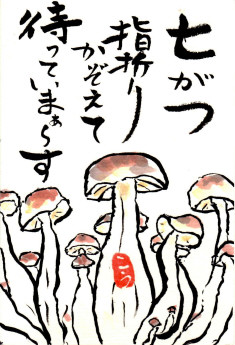 七がつ
指折り
かぞえて
待っていまぁらす
こう